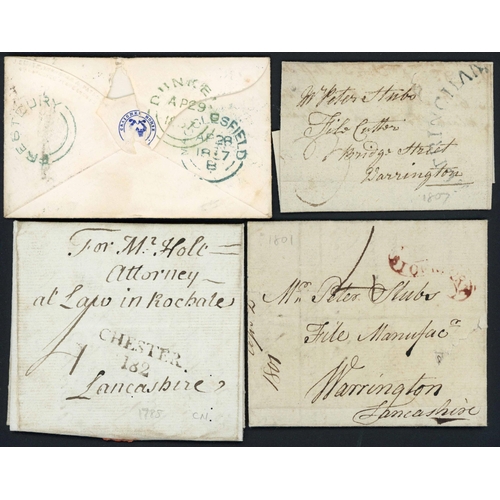 PRESTBURY
DUNKE
AP 29
1847
Mr Peter Stubs
File Cutter
Bridge Street
Warrington
1807
For Mr Holt
Attorney
at Law in Rochale
CHESTER
182
Lancashire
1785
CN.
1801
Mr Peter Stubs
File Manufacr
Warrington
Lancashire
1801